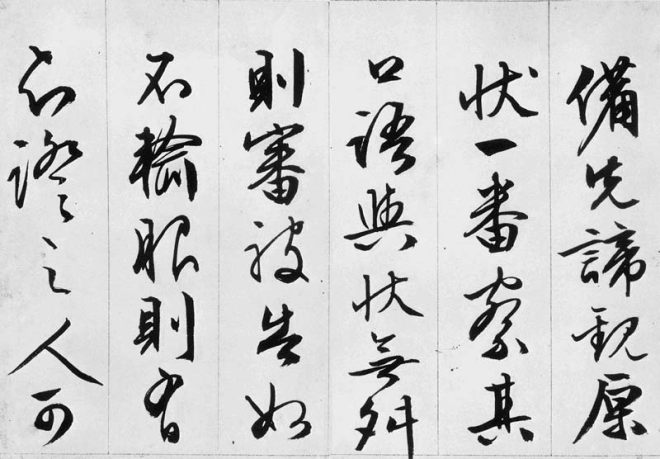 備先諦觀原
狀一番察其
口語與狀無舛
則審被告如
不輸服則有
知證之人可